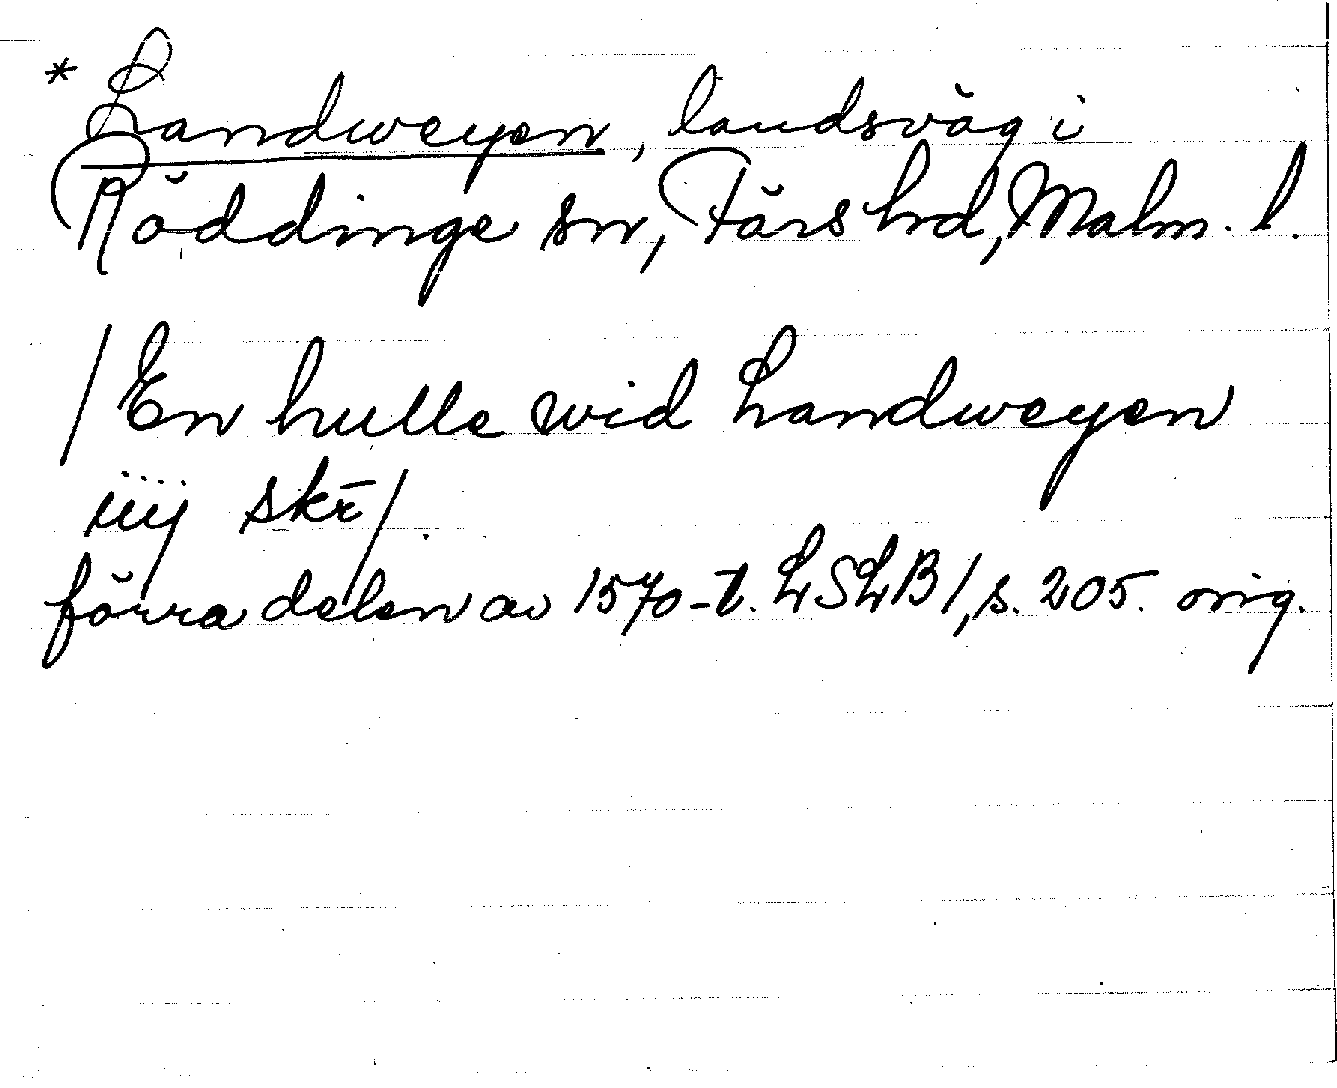 * Landweyen, landsväg i
Röddinge sn, Färs hd, Malm. l.
/En hulle wid Landweyen
iiij skr̄/.
förra delen av 1570-t. LSLB 1, s. 205. orig.